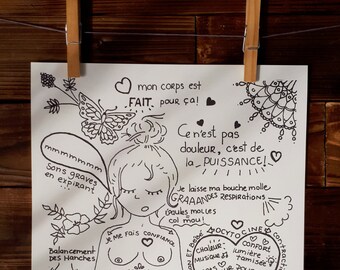 mon corps est
FAIT pour ça!
Ce n'est pas
douleur, c'est de
la PUISSANCE!
mmmmmmm
sons graves
en expirant
Je laisse ma bouche molle
GRAAANDES RESPIRATIONS
col mou!
Je me fais confiance
Balancement
des Hanches
OCYTOCINE
chaleur
confort
musique
lumière
tamisée